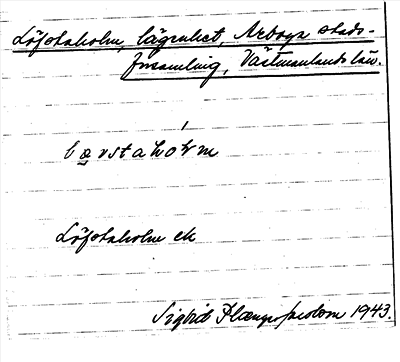 Löfstaholm, lägenhet, Arboga stads-
församling, Västmanlands län.
lœvstahoḷm
Löfstaholm ek
Sigrid 1943.